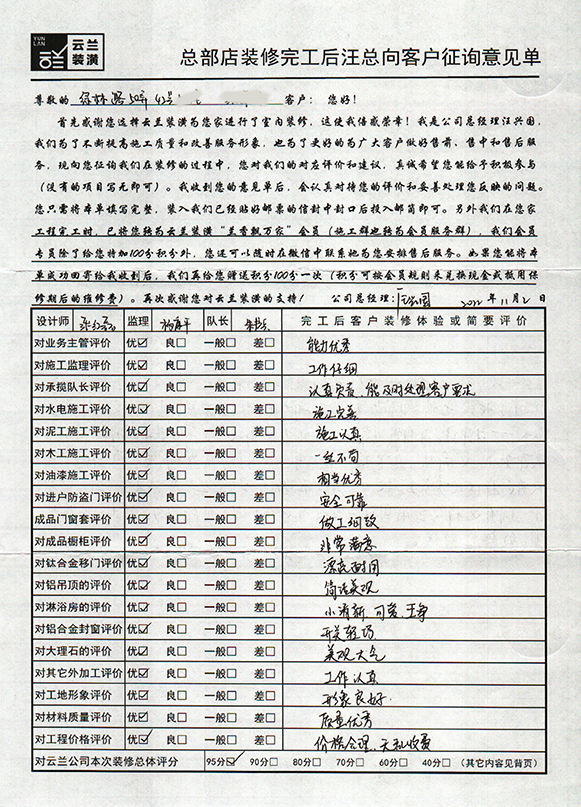 YUN LAN
云兰装潢
总部店装修完工后汪总向客户征询意见单
尊敬的 绿林路50弄42号 客户：您好！
首先感谢您选择云兰装潢为您家进行了室内装修，这使我倍感荣幸！我是公司总经理汪兴国，
我们为了不断提高施工质量和改善服务形象，也为了更好的为广大客户做好售前、售中和售后服
务，现向您征询我们在装修的过程中，您对我们的对应评价和建议，真诚希望您能给予积极参与
（没有的项目写无即可）。我收到您的意见单后，会认真对待您的评价和妥善处理您反映的问题。
您只需将本单填写完整，装入我们已经贴好邮票的信封中封口后投入邮筒即可。另外我们在您家
工程完工时，已将您转为云兰装潢“兰香飘万家”会员（施工群也转为会员服务群），我们会员
专员除了给您特加100分积分外，您还可以随时在微信中联系她为您安排售后服务。如果您能将本
单成功回寄给我收到后，我们再给您赠送积分100分一次（积分可按会员规则来兑换现金或抵用保
修期后的维修费）。再次感谢您对云兰装潢的支持！ 公司总经理： 2022年11月2日
设计师 监理 队长 完工后客户装修体验或简要评价
对业务主管评价 优☑ 良□ 一般□ 差□ 能力优秀
对施工监理评价 优☑ 良□ 一般□ 差□ 工作仔细
对承揽队长评价 优☑ 良□ 一般□ 差□ 认真负责、能及时处理客户要求
对水电施工评价 优☑ 良□ 一般□ 差□ 施工完善
对泥工施工评价 优☑ 良□ 一般□ 差□ 施工认真
对木工施工评价 优☑ 良□ 一般□ 差□ 一丝不苟
对油漆施工评价 优☑ 良□ 一般□ 差□ 相当优秀
对进户防盗门评价 优☑ 良□ 一般□ 差□ 安全可靠
成品门窗套评价 优☑ 良□ 一般□ 差□ 做工细致
对成品橱柜评价 优☑ 良□ 一般□ 差□ 非常满意
对钛合金移门评价 优☑ 良□ 一般□ 差□ 漂亮耐用
对铝吊顶的评价 优☑ 良□ 一般□ 差□ 简洁美观
对淋浴房的评价 优☑ 良□ 一般□ 差□ 小清新、可爱、干净
对铝合金封窗评价 优☑ 良□ 一般□ 差□ 开关轻巧
对大理石的评价 优☑ 良□ 一般□ 差□ 美观大气
对其它外加工评价 优☑ 良□ 一般□ 差□ 工作认真
对工地形象评价 优☑ 良□ 一般□ 差□ 形象良好.
对材料质量评价 优☑ 良□ 一般□ 差□ 质量优秀
对工程价格评价 优☑ 良□ 一般□ 差□ 价格合理、无乱收费
对云兰公司本次装修总体评分 95分☑ 90分□ 80分□ 70分□ 60分□ 40分□ （其它内容见背页）